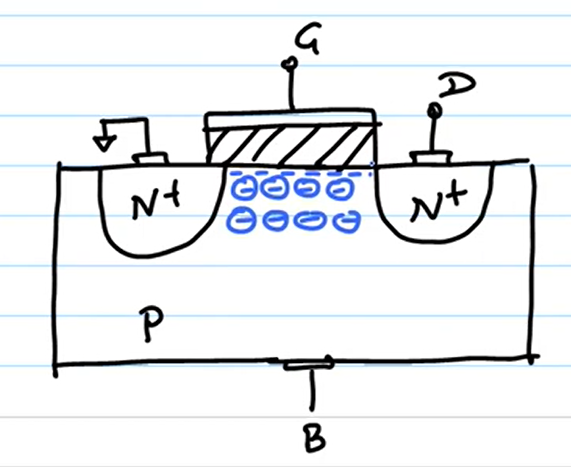 G
D
N+ N+
P
B